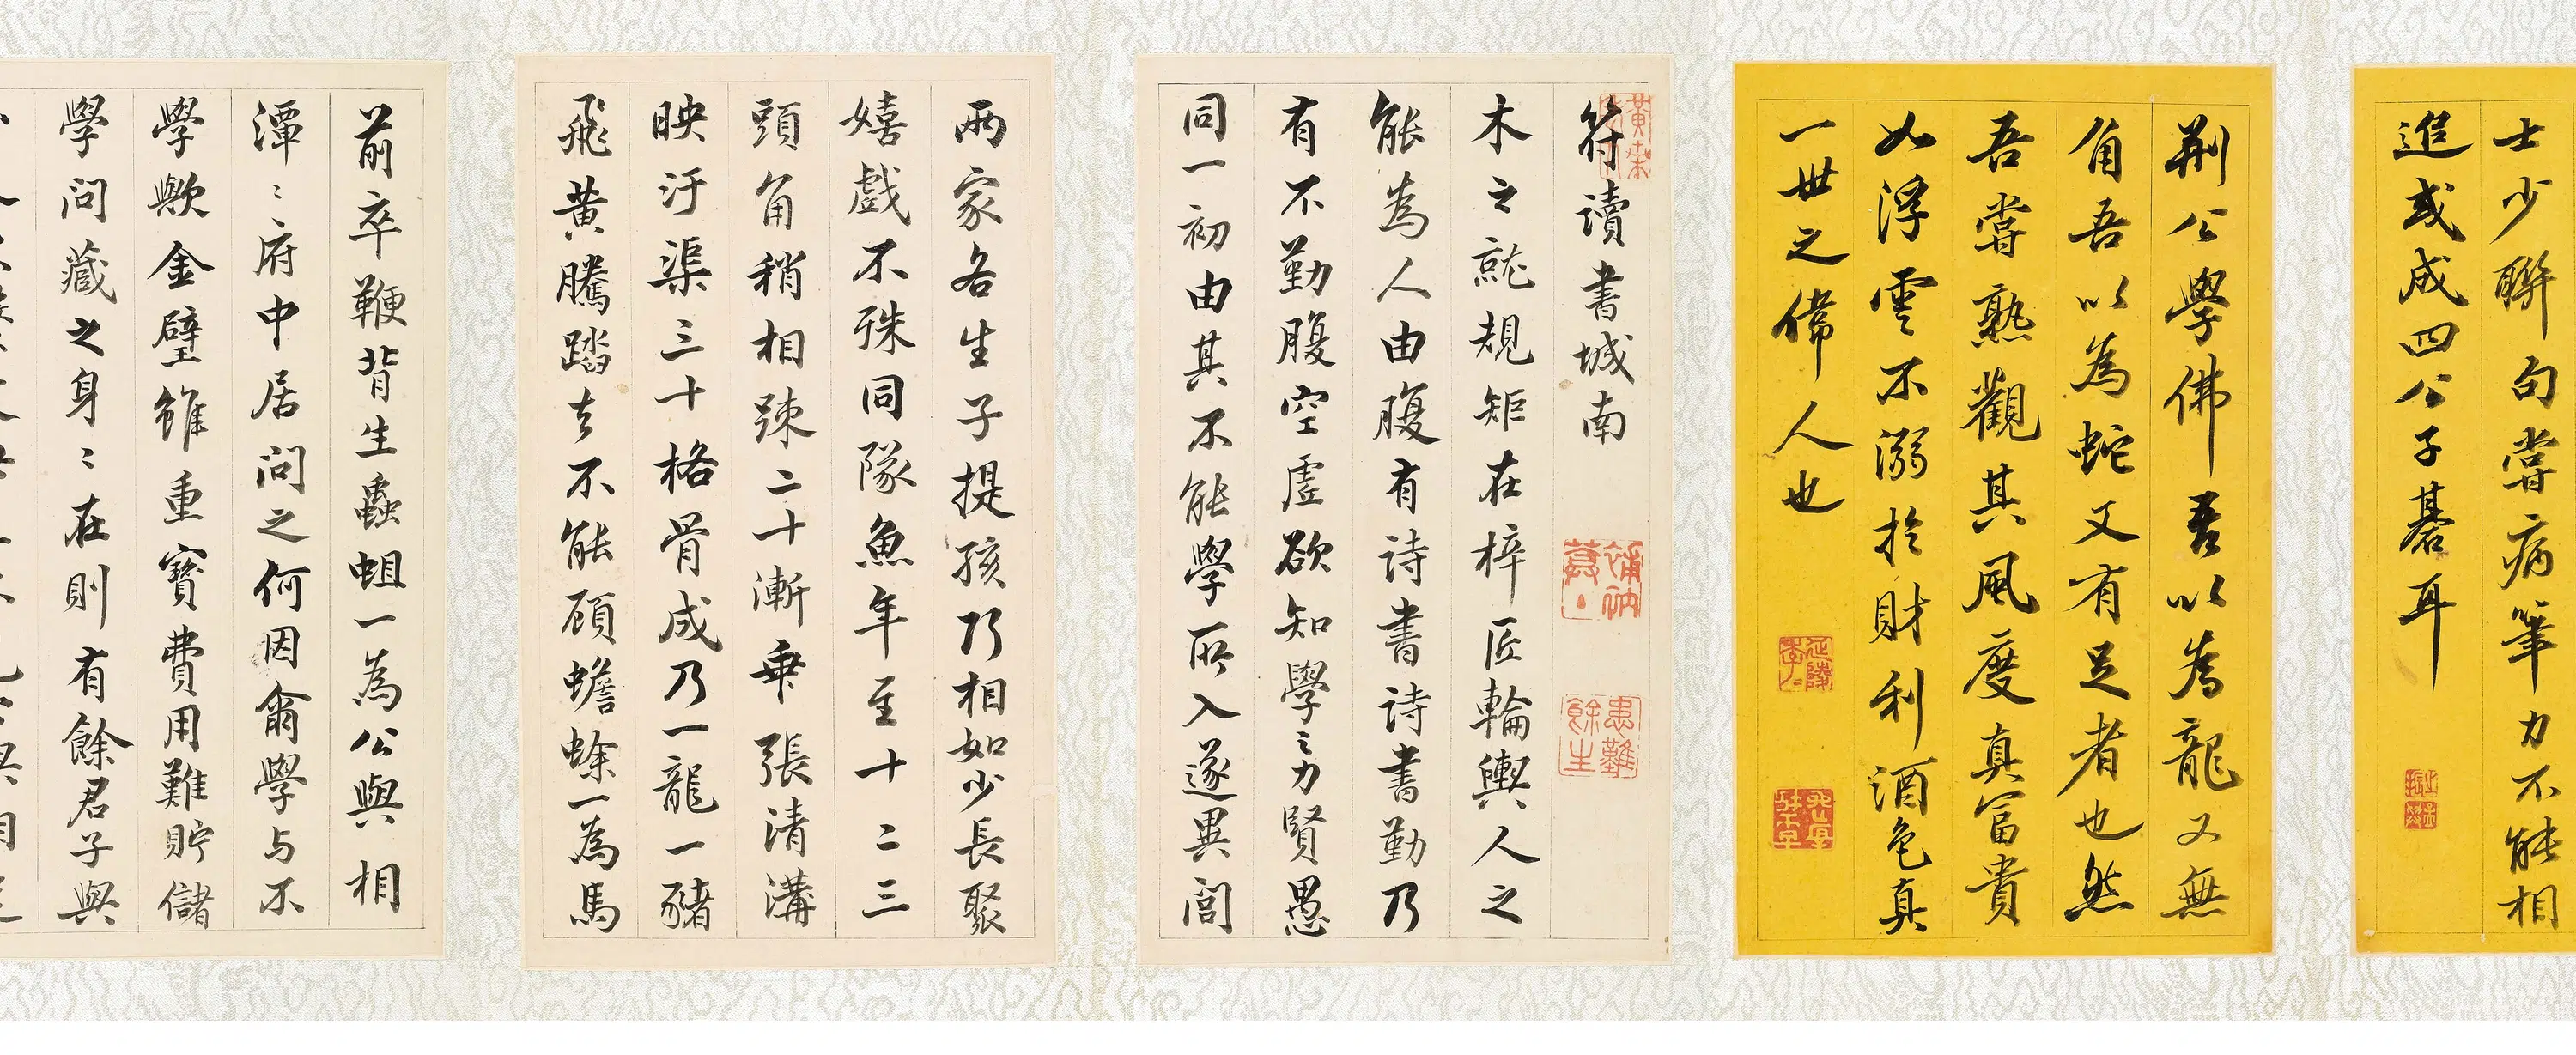 士少聯句嘗病筆力不能相
追或成四公子碁耳
荆公學佛吾以為龍又無
角吾以為蛇又有足者也然
吾嘗熟觀其風度真富貴
如浮雲不溺於財利酒色真
一世之偉人也
符讀書城南
患難餘生
木之就規矩在梓匠輪輿人之
能為人由腹有詩書詩書勤乃
有不勤腹空虛欲知學之力賢愚
同一初由其不能學所入遂異閭
兩家各生子提孩乃相如少長聚
嬉戲不殊同隊魚年至十二三
頭角稍相疎二十漸乗張清溝
映汙渠三十格骨成乃一龍一豬
飛黄騰踏去不能頋蟾蜍一為馬
前卒鞭背生蟲蛆一為公與相
潭〻府中居問之何因爾學与不
學歟金璧雖重寶費用難貯儲
學問藏之身〻在則有餘君子與